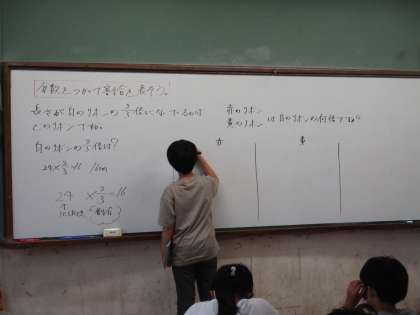 分数をつかって割合を表そう。
長さが白のリボンの2/3倍になっているのは
どのリボンですか。
白のリボンの2/3倍は?
24×2/3=16 16cm
24 ×2/3=16
赤のリボン
黄のリボン は白のリボンの何倍ですか?
赤
黄